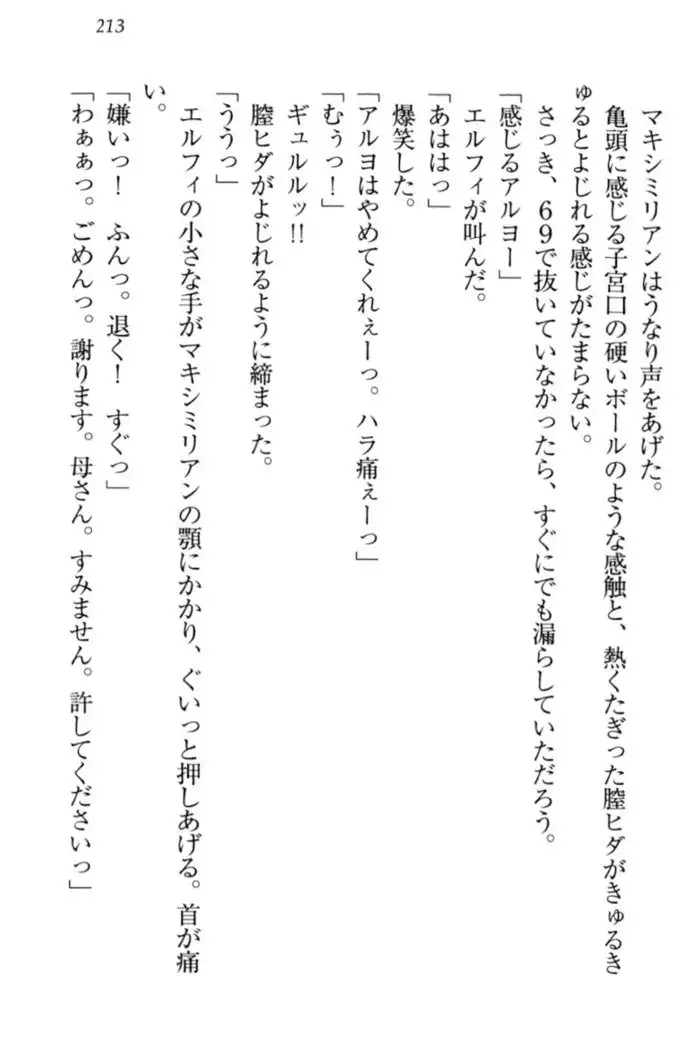 213
マキシミリアンはうなり声をあげた。
亀頭に感じる子宮口の硬いボールのような感触と、熱くたぎった膣ヒダがきゅるき
ゅるとよじれる感じがたまらない。
さっき、69で抜いていなかったら、すぐにでも漏らしていただろう。
「感じるアルヨー」
エルフィが叫んだ。
「あははっ」
爆笑した。
「アルヨはやめてくれぇーっ。ハラ痛ぇーっ」
「むぅっ！」
ギュルルッ!!
膣ヒダがよじれるように締まった。
「ううっ」
エルフィの小さな手がマキシミリアンの顎にかかり、ぐいっと押しあげる。首が痛
い。
「嫌いっ！　ふんっ。退く！　すぐっ」
「わぁぁっ。ごめんっ。謝ります。母さん。すみません。許してくださいっ」